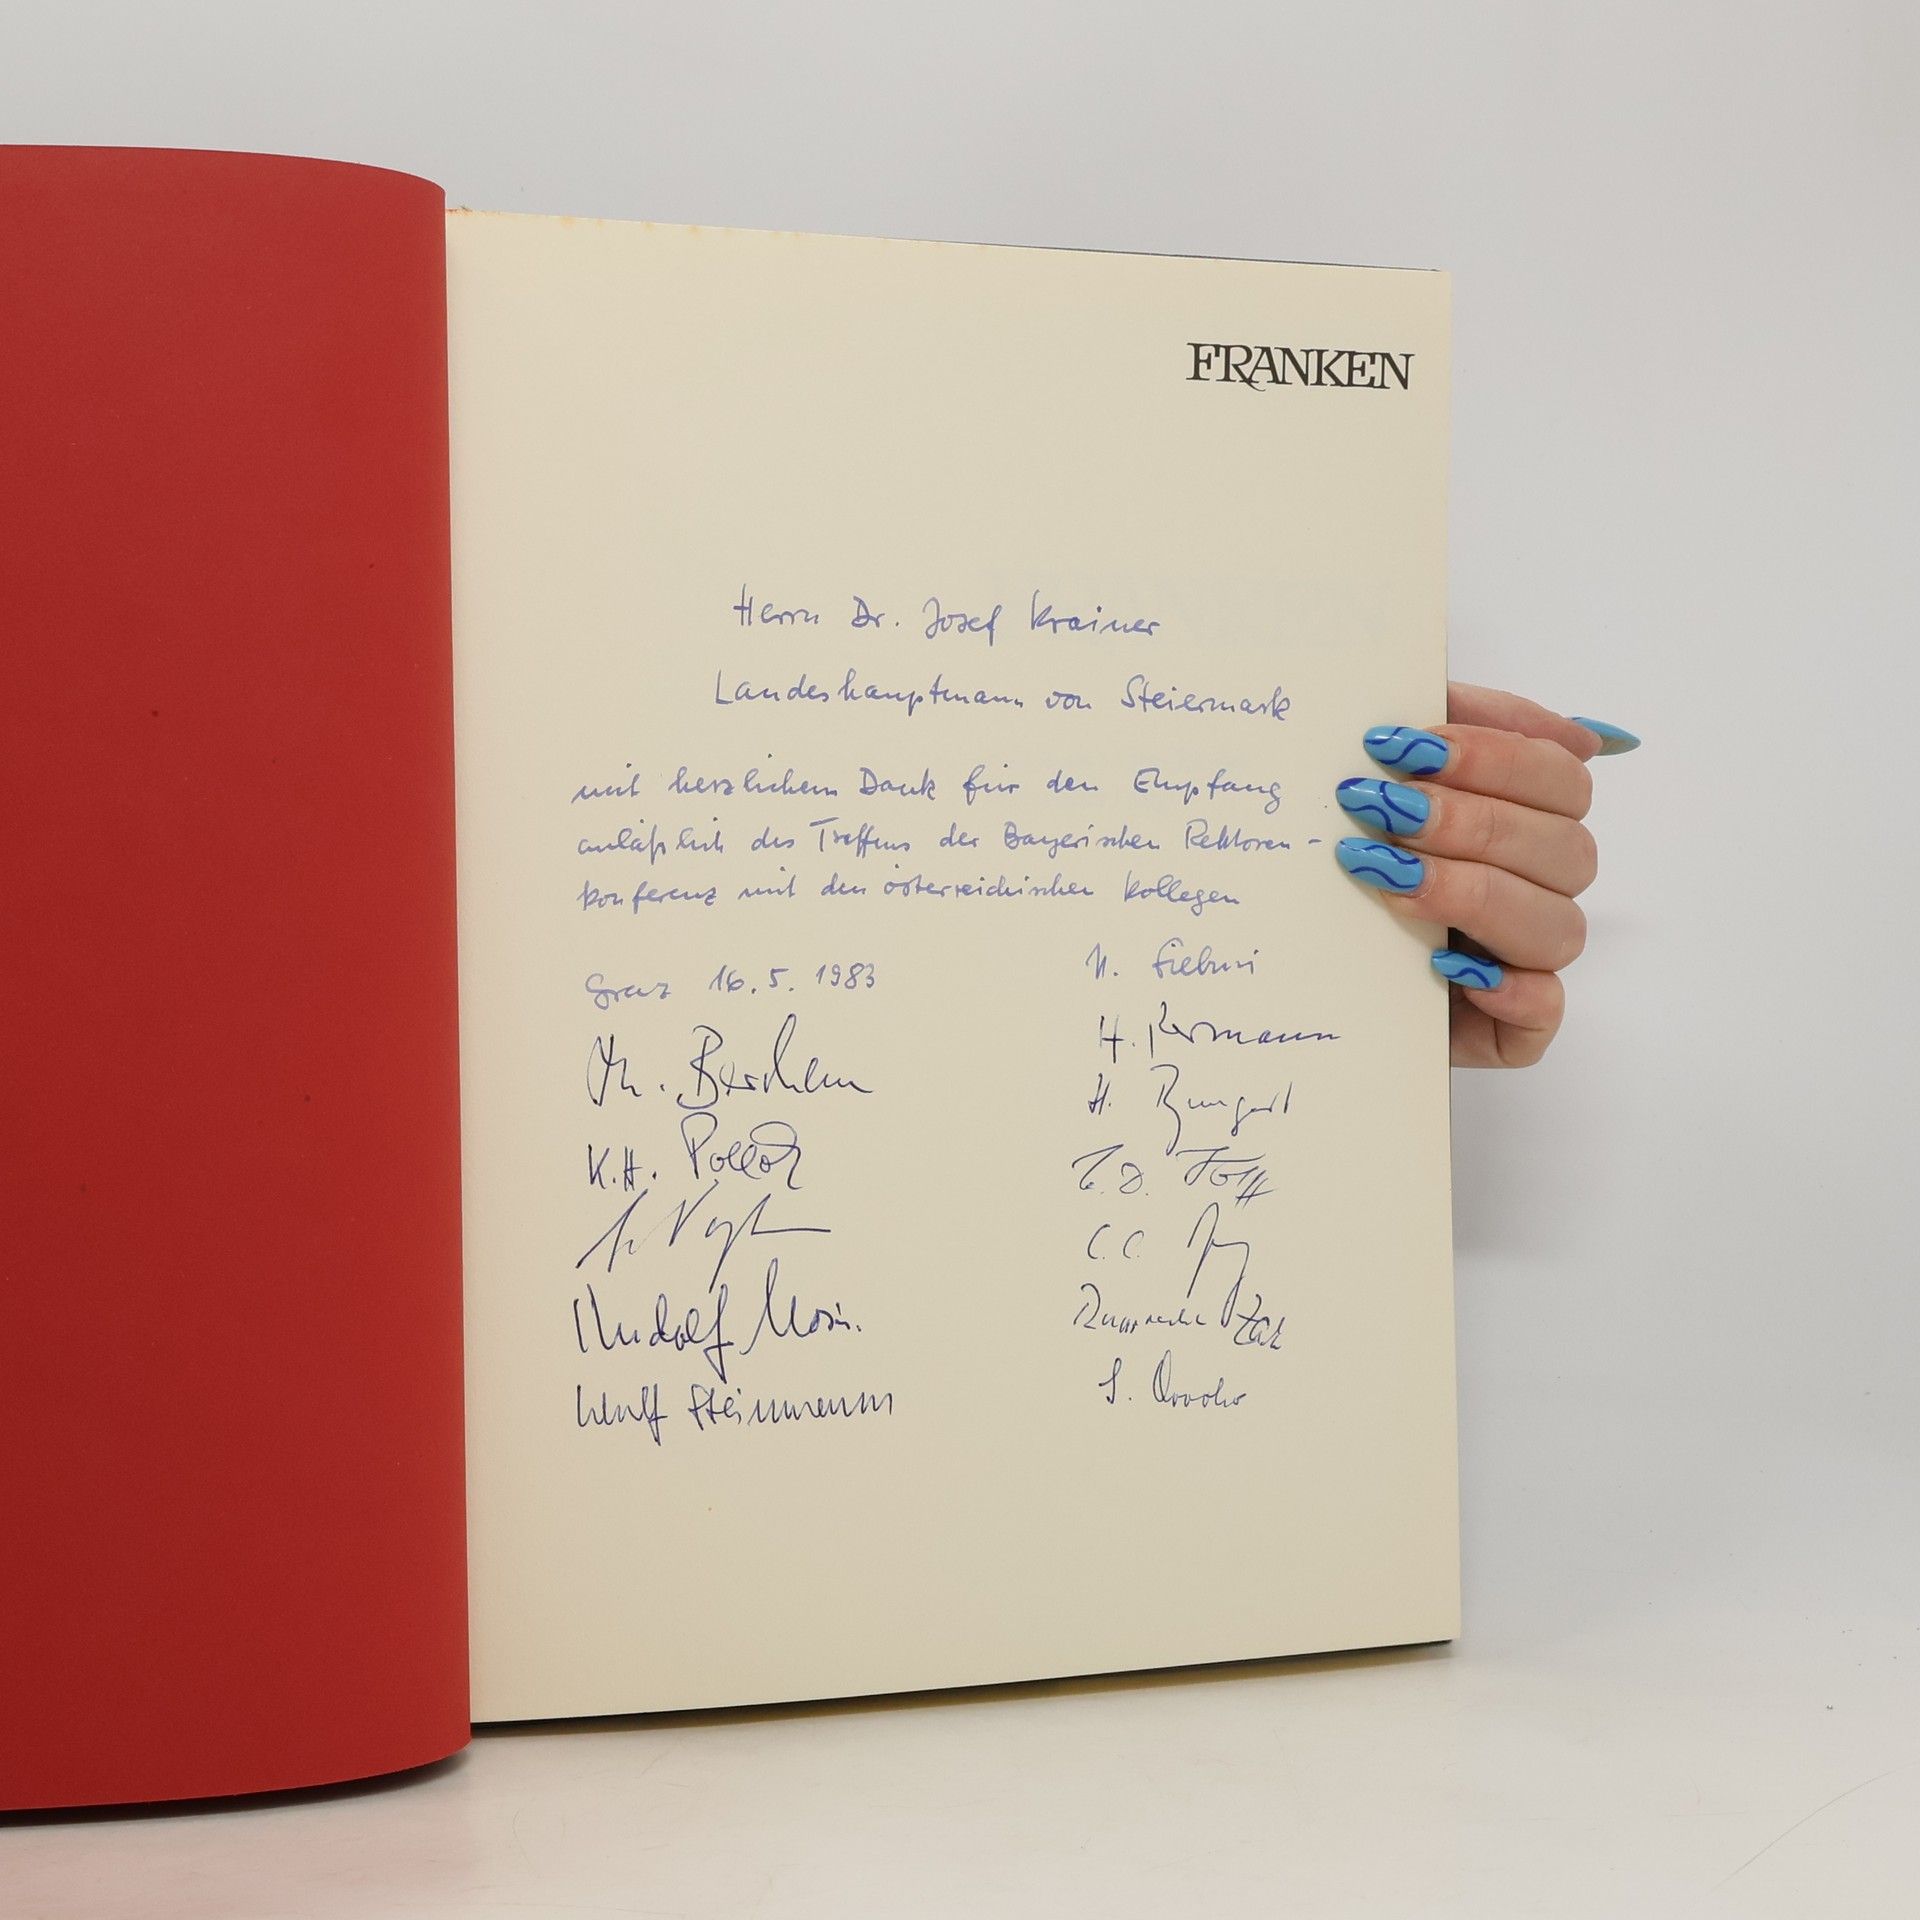 FRANKEN
Herrn Dr. Josef Krainer
Landeshauptmann von Steiermark
mit herzlichem Dank für den Empfang
anläßlich des Treffens der Bayerischen Rektoren-
konferenz mit den österreichischen Kollegen
Graz 16.5.1983
Th. Berchem
K.H. Pollok
Vogel
Rudolf
Wulf Steinmann
N.
H.
H. Bungert
C.C.
S.